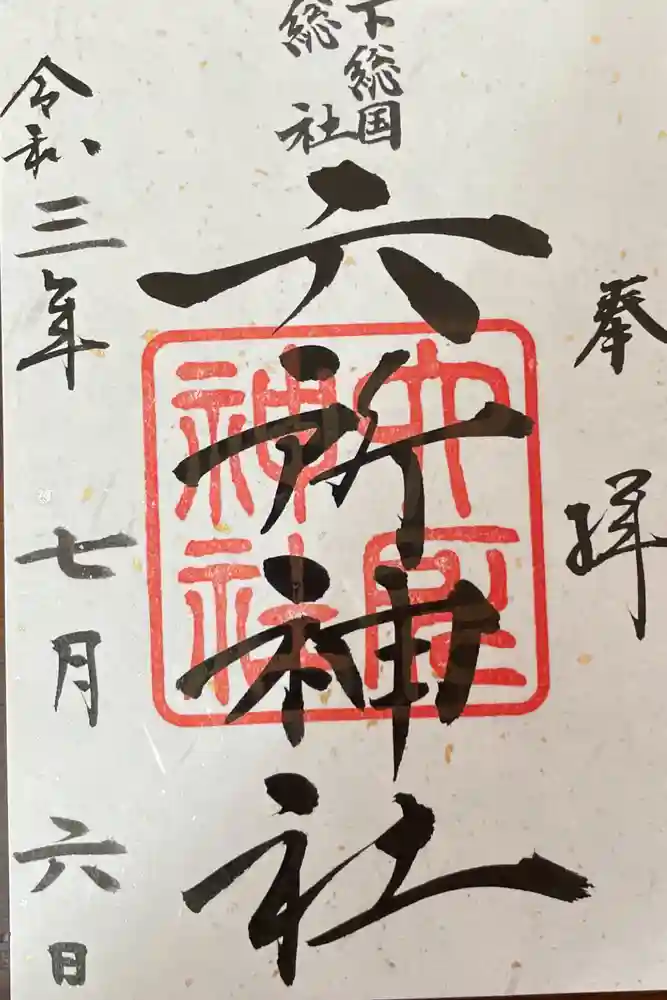 奉拝
下総国
総社
六所神社
六所神社
令和三年七月六日